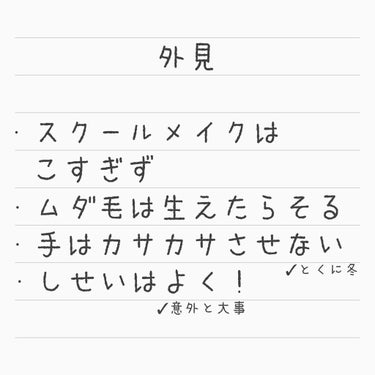 外見
・スクールメイクは
こすぎず
・ムダ毛は生えたらそる
・手はカサカサさせない
✓とくに冬
・しせいはよく！
✓意外と大事